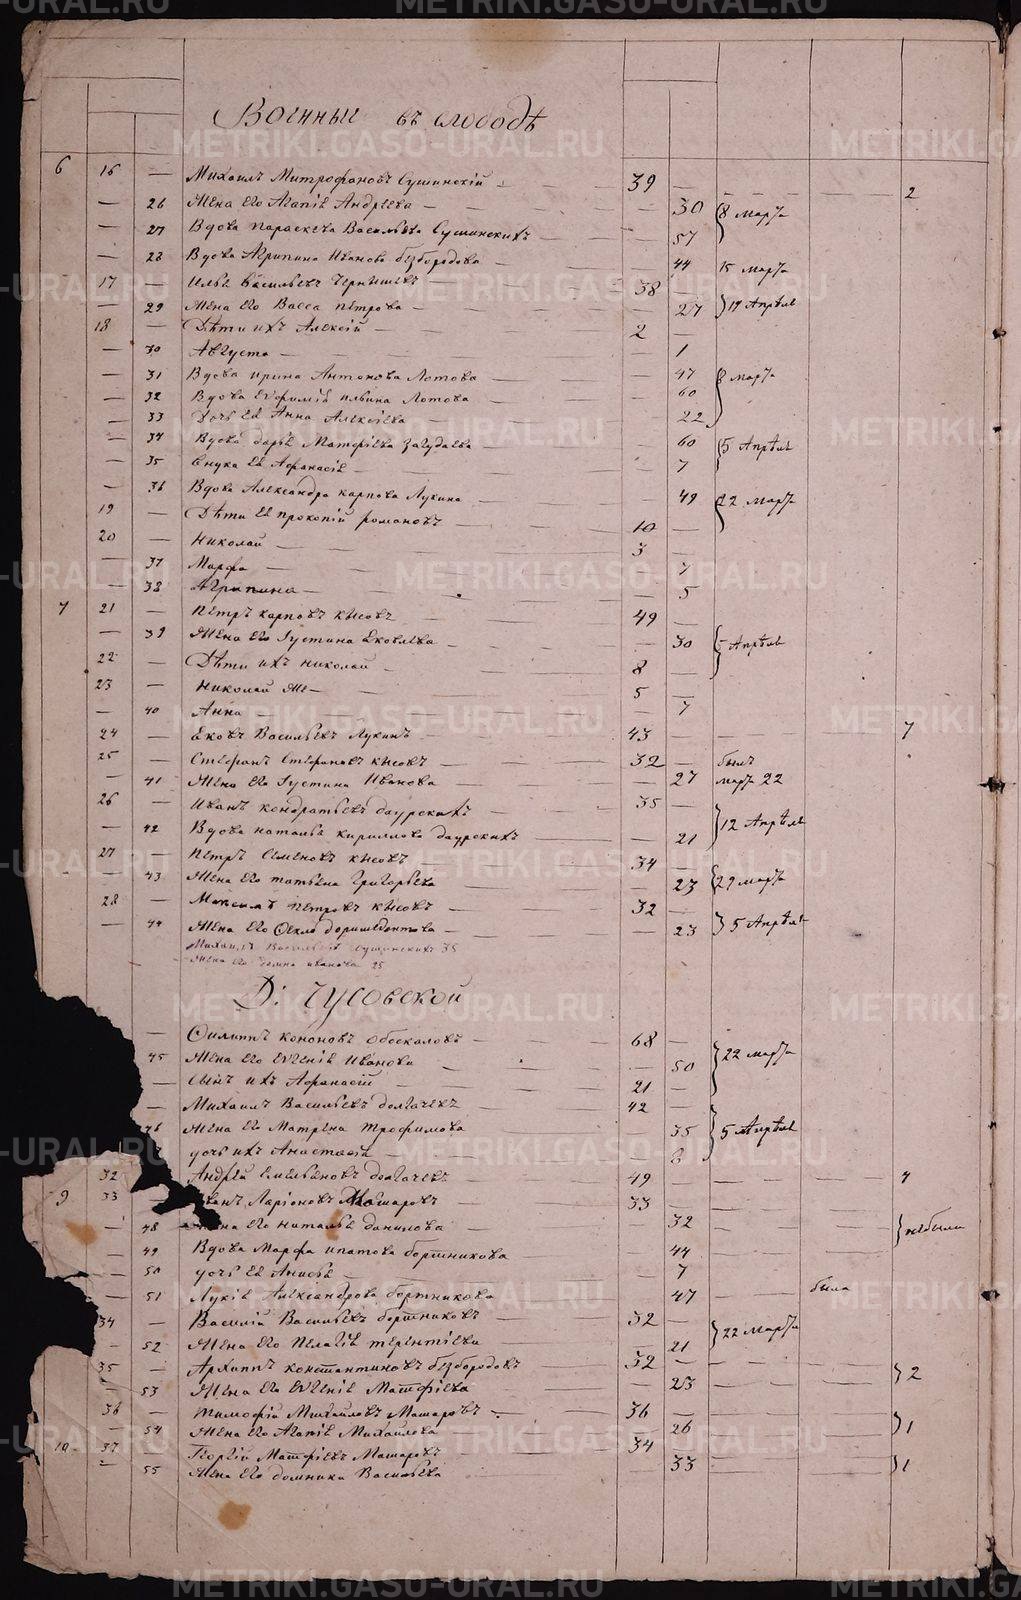 Военныи въ слободѣ
6 16 — Михаилъ Митрофановъ Сушинскій — 39 — — — — 2
— 26 Жена Его Агапіѣ Андрѣева — — 30 } 8 Марта
— 27 Вдова Параскева Васильѣва Сушинскихъ — — 57
— 28 Вдова Агрипина Иванова безбородова — — 44 15 Марта
17 — Ильѣ Васильѣвъ Чернышевъ — 38 —
— 29 Жена Его Васса петрова — — 27 } 19 Апрѣлѣ
18 — Дѣти ихъ Алексій — 2 —
— 30 Августа — — 1
— 31 Вдова ирина Антонова Лотова — — 47 } 8 Марта
— 32 Вдова Евфиміѣ ильина Лотова — — 60
— 33 Дочь Ея Анна Алексіева — — 22
— 34 Вдова дарьѣ Матфіева — — 60 } 5 Апрѣлѣ
— 35 Внука Ея Афанасіѣ — — 7
— 36 Вдова Александра карпова Лукина — — 49 } 22 Марта
19 — Дѣти Ея прокопій романовъ — 10 —
20 — Николай — 3 —
— 37 Марфа — — 7
— 38 Агрипина — — 5
7 21 — Пѣтръ карповъ кысовъ — 49 —
— 39 Жена Его Густина Ековлѣва — — 30 } 5 Апрѣлѣ
22 — Дѣти ихъ николай — 8 —
23 — Николай же — 5 —
— 40 Анна — — 7
24 — Ековъ Васильѣвъ Лукинъ — 43 — — — 7
25 — Стефанъ Стефановъ кысовъ — 32 — былъ
— 41 Жена Его Густина Иванова — — 27 марта 22
26 — Иванъ кондратьѣвъ даурскихъ — 35 —
— 42 Вдова натальѣ кириллова даурскихъ — — 21 } 12 Апрѣлѣ
27 — Пѣтръ Семеновъ кысовъ — 34 —
— 43 Жена Его татьѣна Григорьѣва — — 23 } 29 марта
28 — Максимъ пѣтровъ кысовъ — 32 —
— 44 Жена Его Ѳекла — — 23 } 5 Апрѣлѣ
Михаилъ Васильевъ Сущинскихъ 35
Жена Его домна иванова 25
Д: Чусовской
— Филиппъ кононовъ обоскаловъ — 68 —
45 Жена Его Евгеніѣ Иванова — — 50 } 22 марта
— Сынъ ихъ Афанасій — 21 —
— Михаилъ Васильѣвъ долгачевъ — 42 —
46 Жена Его Матрѣна Трофимова — — 35 } 5 Апрѣлѣ
дочь ихъ Анастасій — 8
32 Андрѣй Емельѣновъ долгачевъ — 49 — — — — 4
9 33 — Иванъ Ларіоновъ Машаровъ — 33 — — —
— 48 Жена Его натальѣ данилова — — 32 — — } небыли
— 49 Вдова Марфа ипатова бортникова — — 44 — —
— 50 дочь Ея Анисьѣ — — 7 — —
— 51 Лукіѣ Александрова бортникова — — 47 — была —
34 — Василій Васильѣвъ бортниковъ — 32 —
— 52 Жена Его Пелагіѣ терентіева — — 21 } 22 Марта
35 — Архиппъ константиновъ безбородовъ — 32 — — —
— 53 Жена Его Евгеніѣ Матфіева — — 23 — — } 2
36 — тимофій Михайловъ Машаровъ — 36 — — —
— 54 Жена Его Агапіѣ Михайлова — — 26 — — } 1
10 37 — Георгій Матфіевъ Машаровъ — 34 — — —
— 55 Жена Его домника Васильѣва — 33 — — } 1
METRIKI.GASO-URAL.RU